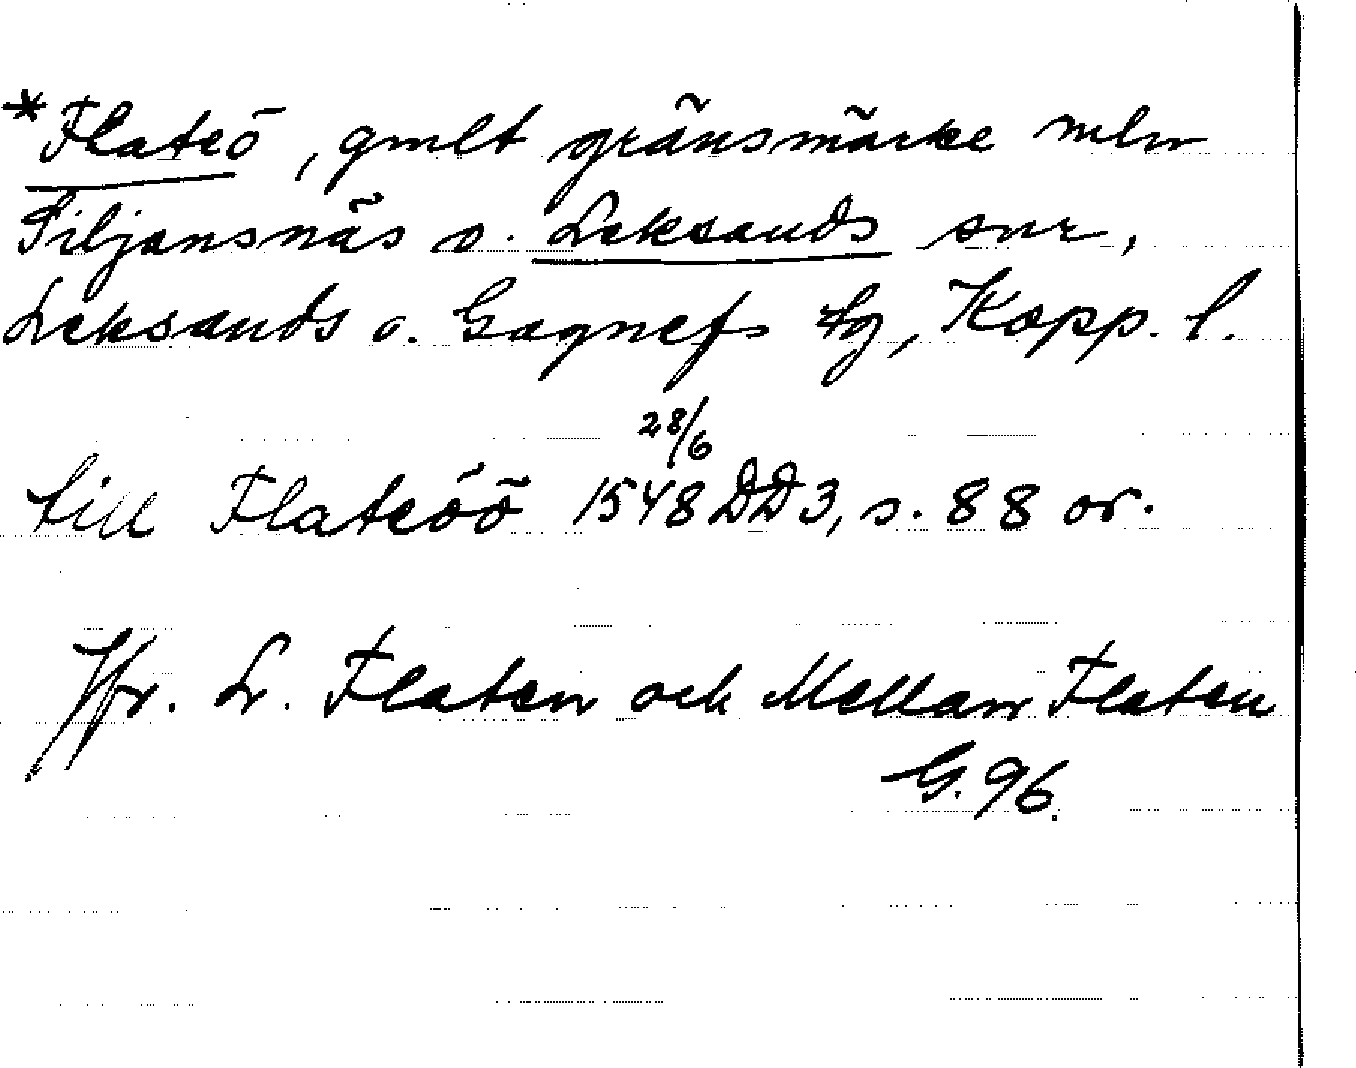 *Flateö, gmlt gränsmärke mln
Siljansnäs o. Leksands snr,
Leksands o. Gagnefs tg, Kopp. l.
28/6
till Flateöö 1548 DD3, s. 88 or.
Jfr. L. Flaten och Mellan Flaten
G. 96.